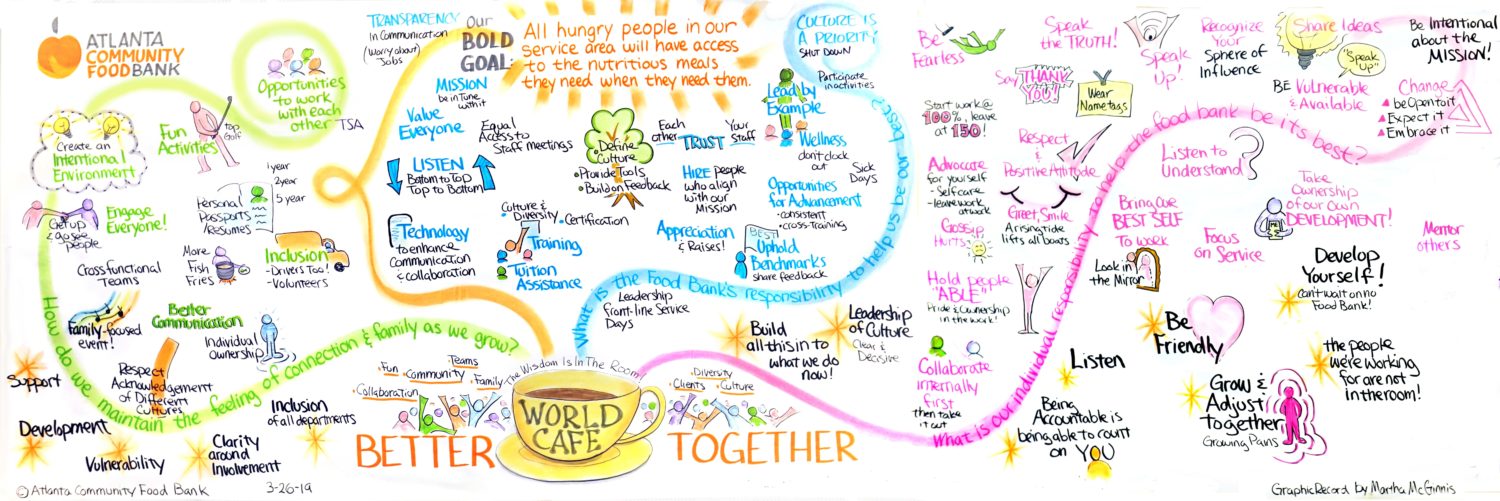 ATLANTA
COMMUNITY
FOODBANK
Opportunities
to work
with each
other
TSA
Create an
Intentional
Environment
Fun
Activities
Top
Golf
Engage
Everyone!
Get up
& go see
people
Personal
Passports
/Resumes
1 year
2 year
5 year
Cross-functional
Teams
More
Fish
Fries
Inclusion
- Drivers Too!
- Volunteers
Family-focused
event!
Better
Communication
Individual
ownership
Respect
Acknowledgement
of Different
Cultures
How do we maintain the feeling of connection & family as we grow?
Support
Development
Vulnerability
Clarity
around
Involvement
Inclusion
of all departments
TRANSPARENCY
in Communication
(Worry about
Jobs
Our
BOLD
GOAL:
All hungry people in our
service area will have access
to the nutritious meals
they need when they need them.
CULTURE IS
A PRIORITY
SHUT DOWN
Participate
in activities
MISSION
be in Tune
with it
Value
Everyone
Equal
Access to
Staff meetings
LISTEN
Bottom to Top
Top to Bottom
• Define
Culture
• Provide Tools
• Build on Feedback
Each
other
TRUST
Your
Staff
HIRE people
who align
with our
Mission
Lead by
Example
Wellness
don't clock
out
Sick
Days
Opportunities
for Advancement
- consistent
- cross-training
Technology
to enhance
communication
& collaboration
Culture &
Diversity
• Certification
Training
Tuition
Assistance
Appreciation
& Raises!
BEST
Uphold
Benchmarks
share feedback
What is the Food Bank's responsibility to help us be our best?
Leadership
front-line Service
Days
Build
all this in to
what we do
now!
Leadership
of Culture
Clear &
Decisive
The Wisdom Is In The Room
• Fun
• Community
Teams
• Family
• Collaboration
• Diversity
• Clients
• Culture
WORLD
CAFE
BETTER
TOGETHER
Be
Fearless
Speak
the TRUTH!
Speak
Up!
Recognize
Your
Sphere of
Influence
Share Ideas
"Speak
Up"
BE Vulnerable
& Available
Be Intentional
about the
MISSION!
Change
be Open to it
Expect it
Embrace it
Say THANK
YOU!
Wear
Nametags
Start work @
100%, leave
at 150!
Respect
&
Positive Attitude
Listen to
Understand
Advocate
for yourself
- Self care
- leave work
at work
Greet, Smile
A rising tide
lifts all boats
Bring our
BEST SELF
To work
Take
Ownership
of our Own
DEVELOPMENT!
ME
Gossip
Hurts
Focus
on Service
Mentor
others
Look in
the Mirror
Hold people
"ABLE"
Pride & Ownership
in the work!
Develop
Yourself!
Can't wait on no
Food Bank!
Be
Friendly
Collaborate
internally
first
then take
it out
Listen
the people
were working
for are not
in the room!
Grow &
Adjust
together
Growing Pains
Being
Accountable is
being able to count
on YOU
What is our individual responsibility to help the food bank be its best?
© Atlanta Community Food Bank
3-26-19
Graphic Record by Martha McGinnis